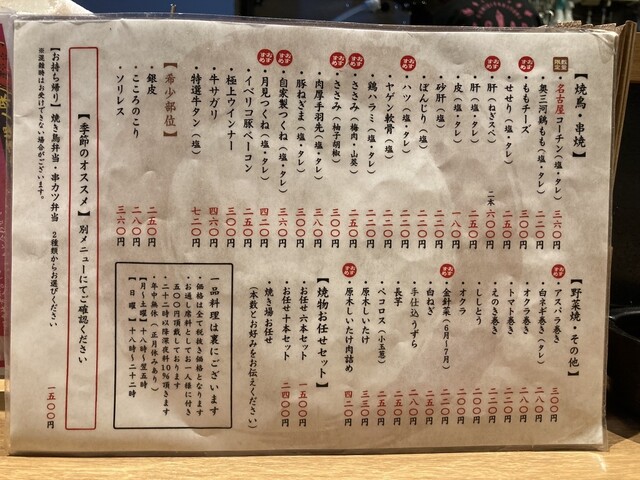 【焼鳥・串焼】
数量限定 ・名古屋コーチン(塩・タレ) 三六〇円
・奥三河鶏もも(塩・タレ) 二二〇円
おすすめ ・ももチーズ 三〇〇円
・せせり(塩・タレ) 二五〇円
おすすめ ・肝(ねぎスペ) 二本 六〇〇円
・肝(塩・タレ) 二〇〇円
・皮(塩・タレ) 一八〇円
・砂肝(塩) 二二〇円
・ぼんじり(塩) 二二〇円
おすすめ ・ハツ(塩・タレ) 二二〇円
・ヤゲン軟骨(塩) 二二〇円
・鶏ハラミ(塩・タレ) 二二〇円
おすすめ ・ささみ(梅肉・山葵) 二五〇円
おすすめ ・ささみ(柚子胡椒) 三〇〇円
・肉厚手羽先(塩・タレ) 三八〇円
・豚ねぎま(塩・タレ) 三〇〇円
おすすめ ・自家製つくね(塩・タレ) 三六〇円
おすすめ ・月見つくね(塩・タレ) 四二〇円
・イベリコ豚ベーコン 二五〇円
・極上ウインナー 三〇〇円
・牛サガリ 四六〇円
・特選牛タン(塩) 七二〇円
【希少部位】
・銀皮 二五〇円
・こころのこり 二八〇円
・ソリレス 三六〇円
【野菜焼・その他】
おすすめ ・アスパラ巻き 三〇〇円
・白ネギ巻き(タレ) 二八〇円
・オクラ巻き 二八〇円
・トマト巻き 二二〇円
・えのき巻き 二二〇円
・ししとう 二〇〇円
・オクラ 二〇〇円
おすすめ ・金針菜(6月〜7月) 二二〇円
・白ねぎ 二五〇円
・手仕込うずら 二八〇円
・長芋 二五〇円
・ペコロス(小玉葱) 二五〇円
・原木しいたけ 三三〇円
おすすめ ・原木しいたけ肉詰め 四二〇円
【焼物お任せセット】
・お任せ六本セット 一五〇〇円
・お任せ十本セット 二四〇〇円
・焼き場お任せ
(本数とお好みをお伝えください)
一品料理は裏にございます
・価格は全て税抜き価格となります
・お通し席料としてお一人様に付き
五〇〇円頂戴しております
・二十二時以降深夜料10%頂きます
・年中無休(正月休みあり)
【月〜土曜】十八時〜翌五時
【日曜】十八時〜二十二時
【季節のオススメ】別メニューにてご確認ください
【お持ち帰り】焼き鳥弁当・串カツ弁当 2種類からお選びください 一五〇〇円
※混雑時はお受けできない場合がございます。